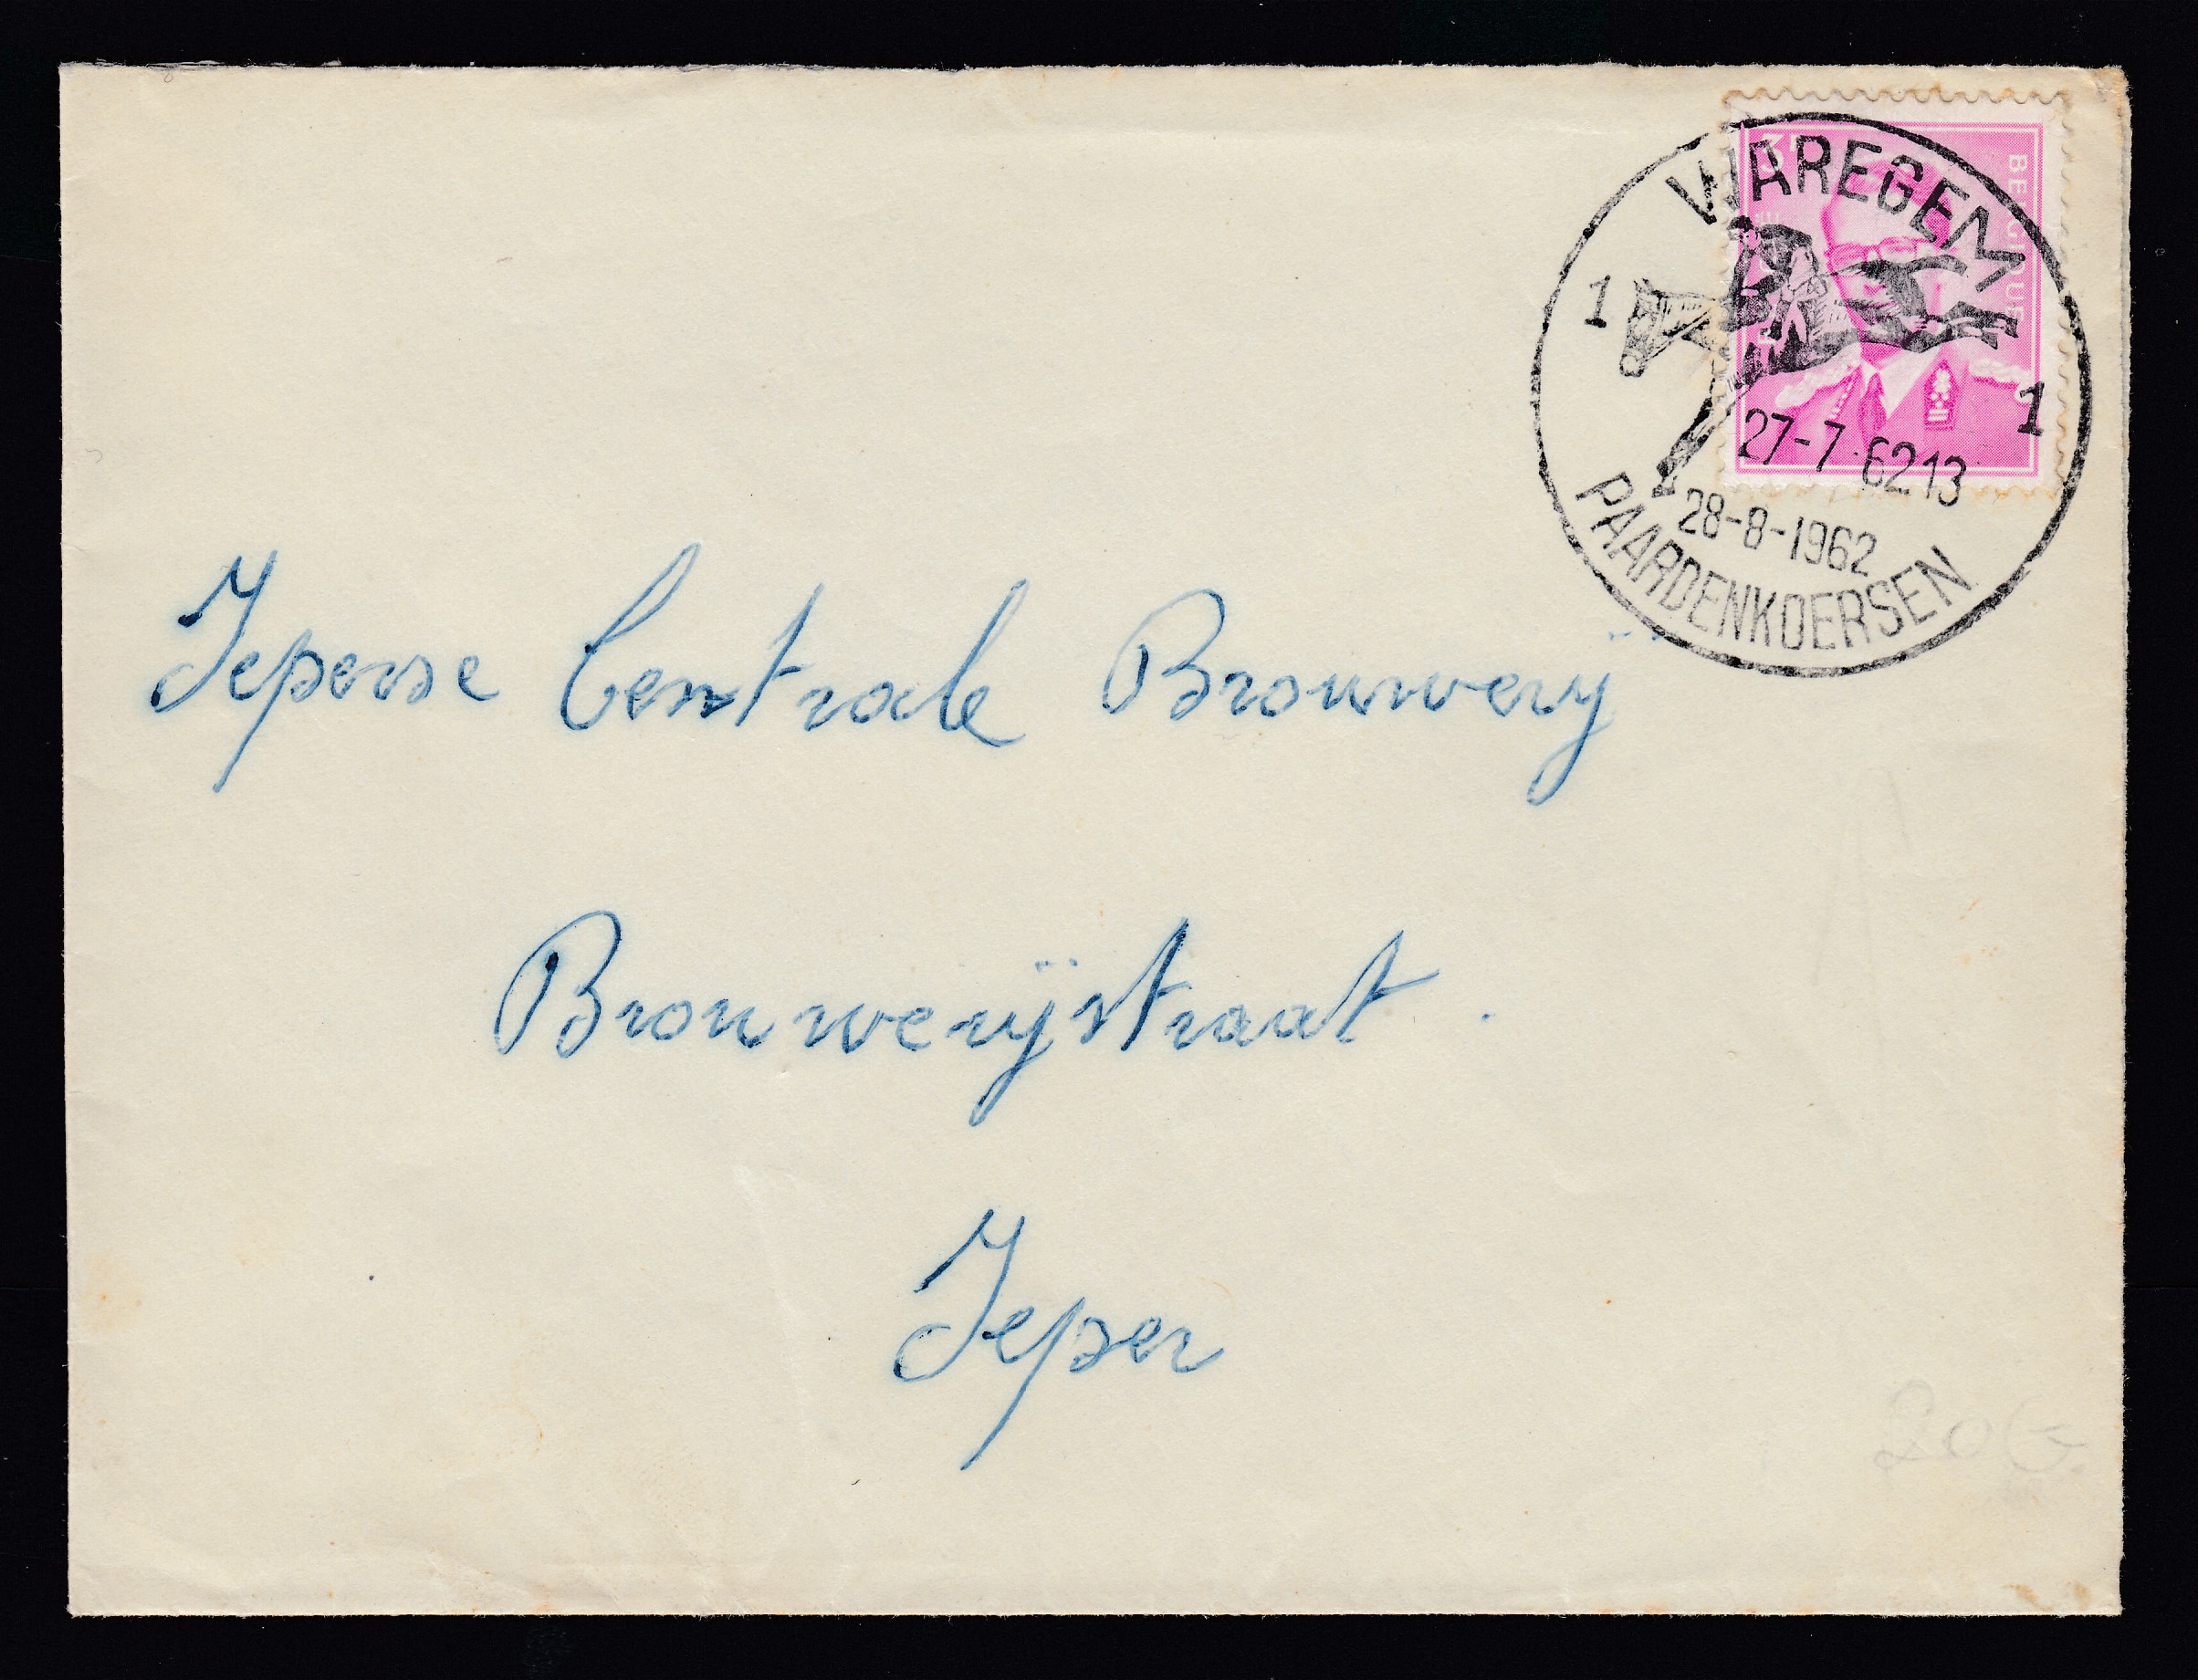 WAREGEM
3F
BELGIQUE
1
1
27-7-62 13
28-8-1962
PAARDENKOERSEN
Ieperse Centrale Brouwerij
Brouwerijstraat.
Ieper